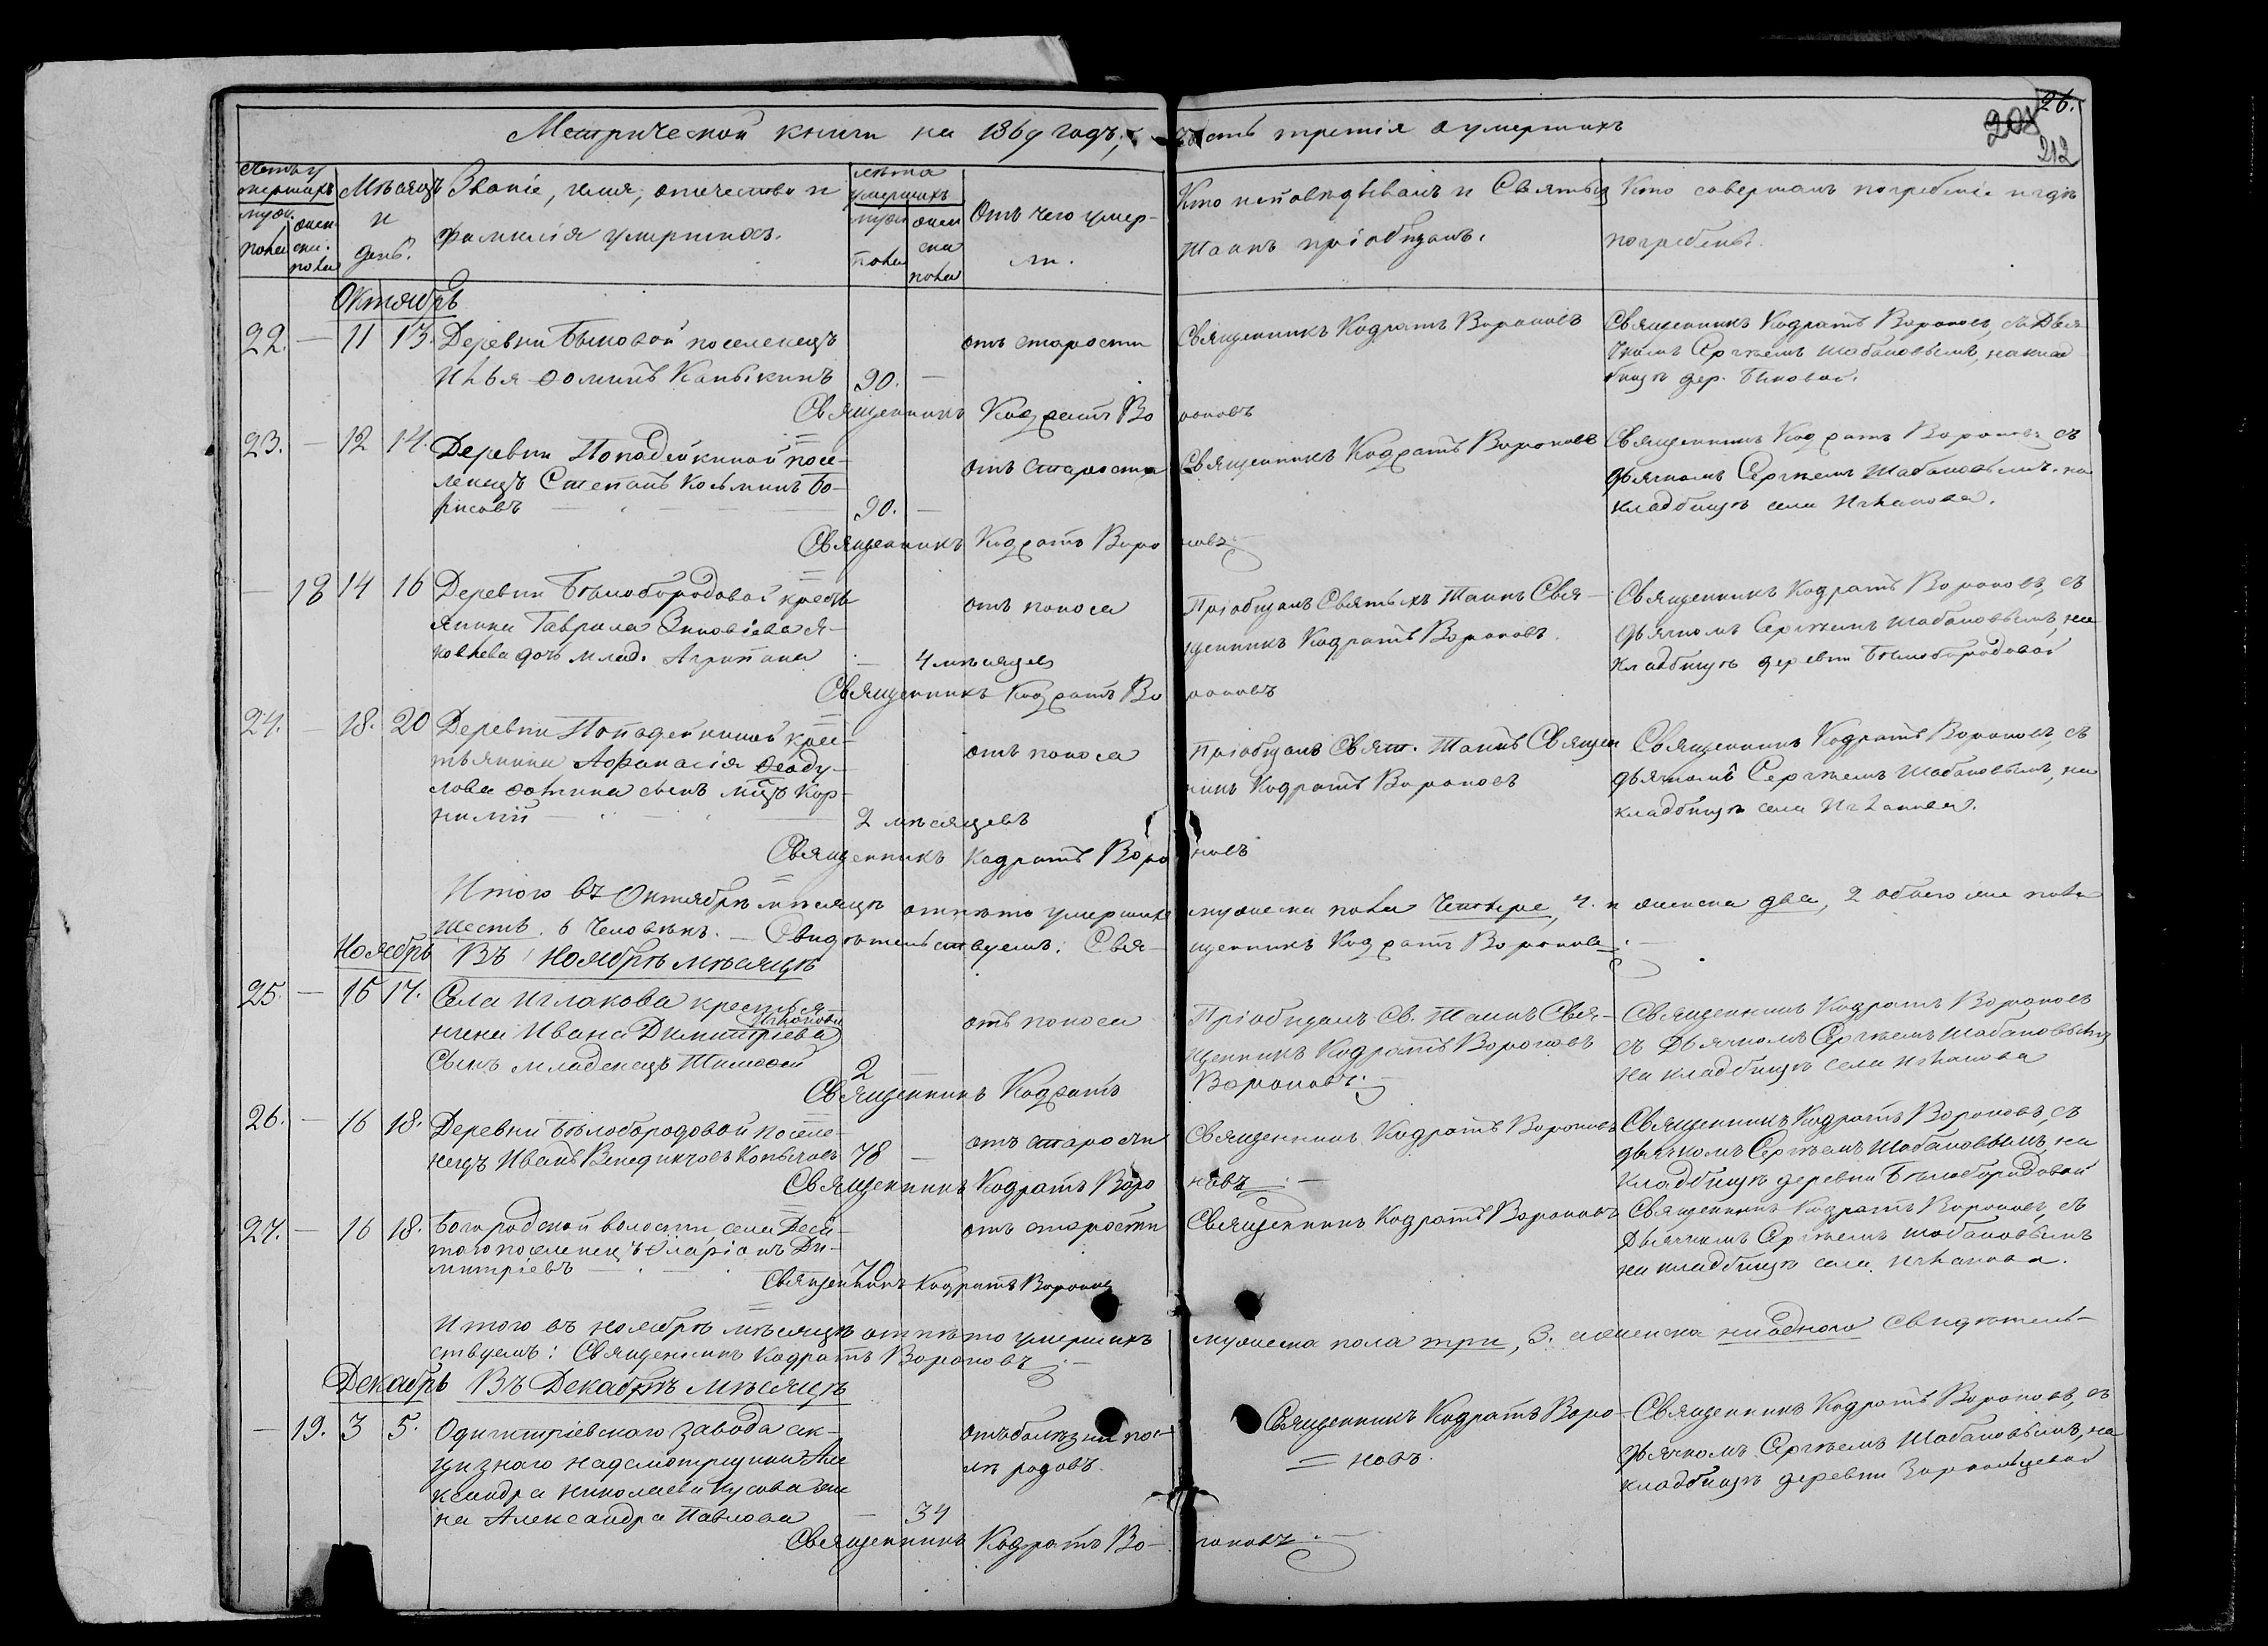 26.
208
212
Метрической книги на 1869 годъ, часть третія о умершихъ
Счетъ умершихъ
мужеска пола
женска пола
Мѣсяцъ и день.
Званіе, имя, отчество и фамилія умершихъ.
Лѣта умершихъ
мужеска пола
женска пола
Отъ чего умерли.
Кто исповѣдывалъ и Святыхъ Таинъ пріобщалъ.
Кто совершалъ погребеніе и гдѣ погребены.
Октябрь
22. — 11 13. Деревни Быковой поселенецъ
Илья Ѳоминъ 90. —
отъ старости
Священникъ Кодратъ Вороновъ
Священникъ Кодратъ Вороновъ, съ Дьячкомъ Сергѣемъ Шабановымъ, на кладбищѣ дер. Быковой.
Священникъ Кодратъ Вороновъ
23. — 12 14. Деревни Попадейкиной поселенецъ Степанъ Козьминъ Борисовъ — 90. —
отъ старости
Священникъ Кодратъ Вороновъ
Священникъ Кодратъ Вороновъ съ дьячкомъ Сергѣемъ Шабановымъ. на кладбищѣ села Иглакова.
Священникъ Кодратъ Вороновъ
— 18 14 16 Деревни Бѣлобородовой крестьянина Гаврила Зиновіева Яковлева дочь млад. Агрипина — 4 мѣсяцев
отъ поноса
Пріобщалъ Святыхъ Таинъ Священникъ Кодратъ Вороновъ.
Священникъ Кодратъ Вороновъ, съ дьячкомъ Сергѣемъ Шабановымъ, на кладбищѣ деревни Бѣлобородовой
Священникъ Кодратъ Вороновъ
24. — 18. 20 Деревни Попадейкиной крестьянина Афанасія Ѳеодулова Ѳотина сынъ млцъ Корнилій — 2 мѣсяцевъ
отъ поноса
Пріобщалъ Свят. Таинъ Священникъ Кодратъ Вороновъ
Священникъ Кодратъ Вороновъ, съ дьячкомъ Сергѣемъ Шабановымъ, на кладбищѣ села Иглакова.
Священникъ Кодратъ Вороновъ
Итого въ Октябрѣ мѣсяцѣ отпѣто умершихъ мужеска пола четыре, 4. и женска два, 2 обоего же пола
шесть. 6 человѣкъ. — Свидѣтельствуемъ: Священникъ Кодратъ Вороновъ
Ноябрь Въ Ноябрѣ мѣсяцѣ
25. — 15 17. Села Иглакова крестьянина Ивана Димитріева
Сынъ младенецъ Тимоѳей 2
отъ поноса
Пріобщалъ Св. Таинъ Священникъ Кодратъ Вороновъ
Священникъ Кодратъ Вороновъ съ Дьячкомъ Сергѣемъ Шабановымъ на кладбищѣ села Иглакова
Священникъ Кодратъ Вороновъ.
26. — 16 18. Деревни Бѣлобородовой поселенецъ Иванъ Венедиктовъ 78 —
отъ старости
Священникъ Кодратъ Вороновъ
Священникъ Кодратъ Вороновъ, съ дьячкомъ Сергѣемъ Шабановымъ, на кладбищѣ деревни Бѣлобородовой
Священникъ Кодратъ Вороновъ
27. — 16 18. Богородской волости, села
поселенецъ Иларіонъ Димитріевъ — 70
отъ старости
Священникъ Кодратъ Вороновъ
Священникъ Кодратъ Вороновъ, съ Дьячкомъ Сергѣемъ Шабановымъ на кладбищѣ села Иглакова.
Священникъ Кодратъ Вороновъ
Итого въ ноябрѣ мѣсяцѣ отпѣто умершихъ мужеска пола три, 3. женска ниодного Свидѣтель-
ствуемъ: Священникъ Кодратъ Вороновъ
Декабрь Въ Декабрѣ мѣсяцѣ
— 19. 3 5. Одигитріевскаго завода акцизнаго надсмотрщика Александра Николаева жена Александра Павлова — 34
отъ болѣзни послѣ родовъ.
Священникъ Кодратъ Вороновъ.
Священникъ Кодратъ Вороновъ, съ дьячкомъ Сергѣемъ Шабановымъ, на кладбищѣ деревни
Священникъ Кодратъ Вороновъ.